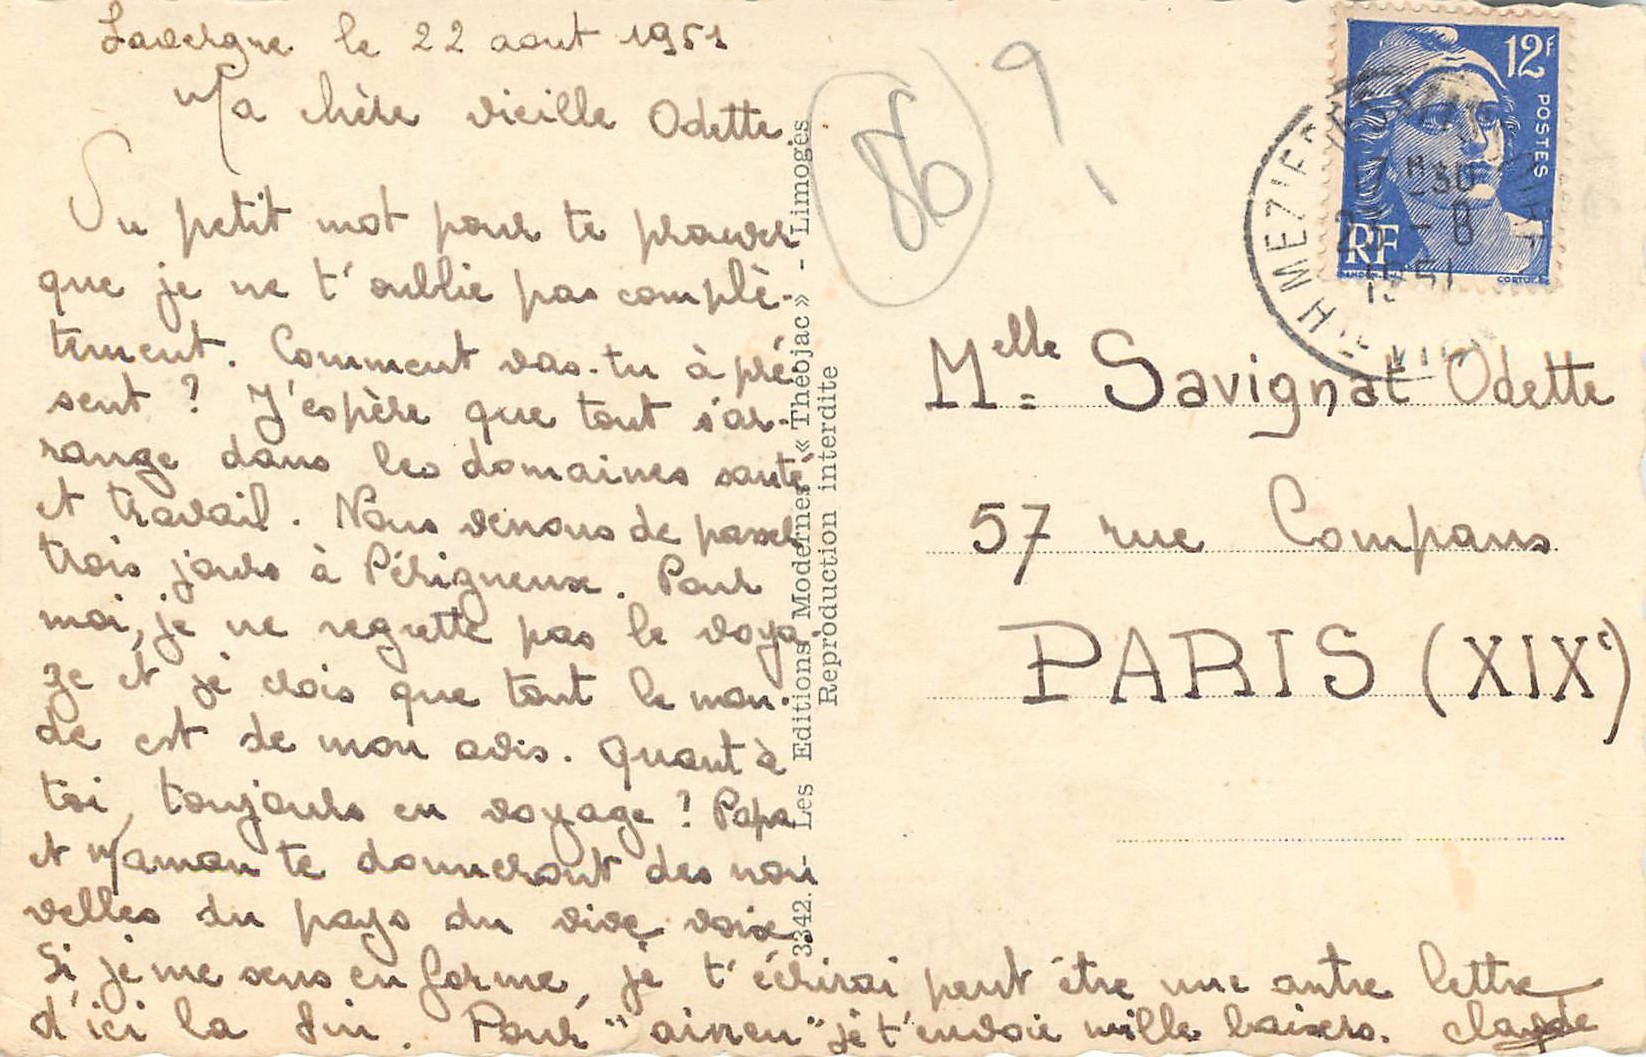 Lavergne le 22 aout 1951
Ma chère vieille Odette.
Un petit mot pour te prouver
que je ne t'oublie pas complè-
tement. Comment vas-tu à pré-
sent ? J'espère que tout s'ar-
range dans les domaines santé
et travail. Nous venons de passer
trois jours à Périgneux. Pour
moi, je ne regrette pas le voya-
ge et je crois que tout le mon-
de est de mon avis. Quant à
toi, toujours en voyage ? Papa
et Maman te donneront des nou
velles du pays du vive voix.
Si je me sens en forme, je t'écrirai peut être une autre lettre
d'ici la fin. Pour je t'envoie mille baisers. Claude
3342. - Les Editions Modernes « Théojac » - Limoges
Reproduction interdite
86 ?
12F
POSTES
RF
17 H 30
- 8
1951
Melle Savignat Odette
57 rue Compans
PARIS (XIXe)